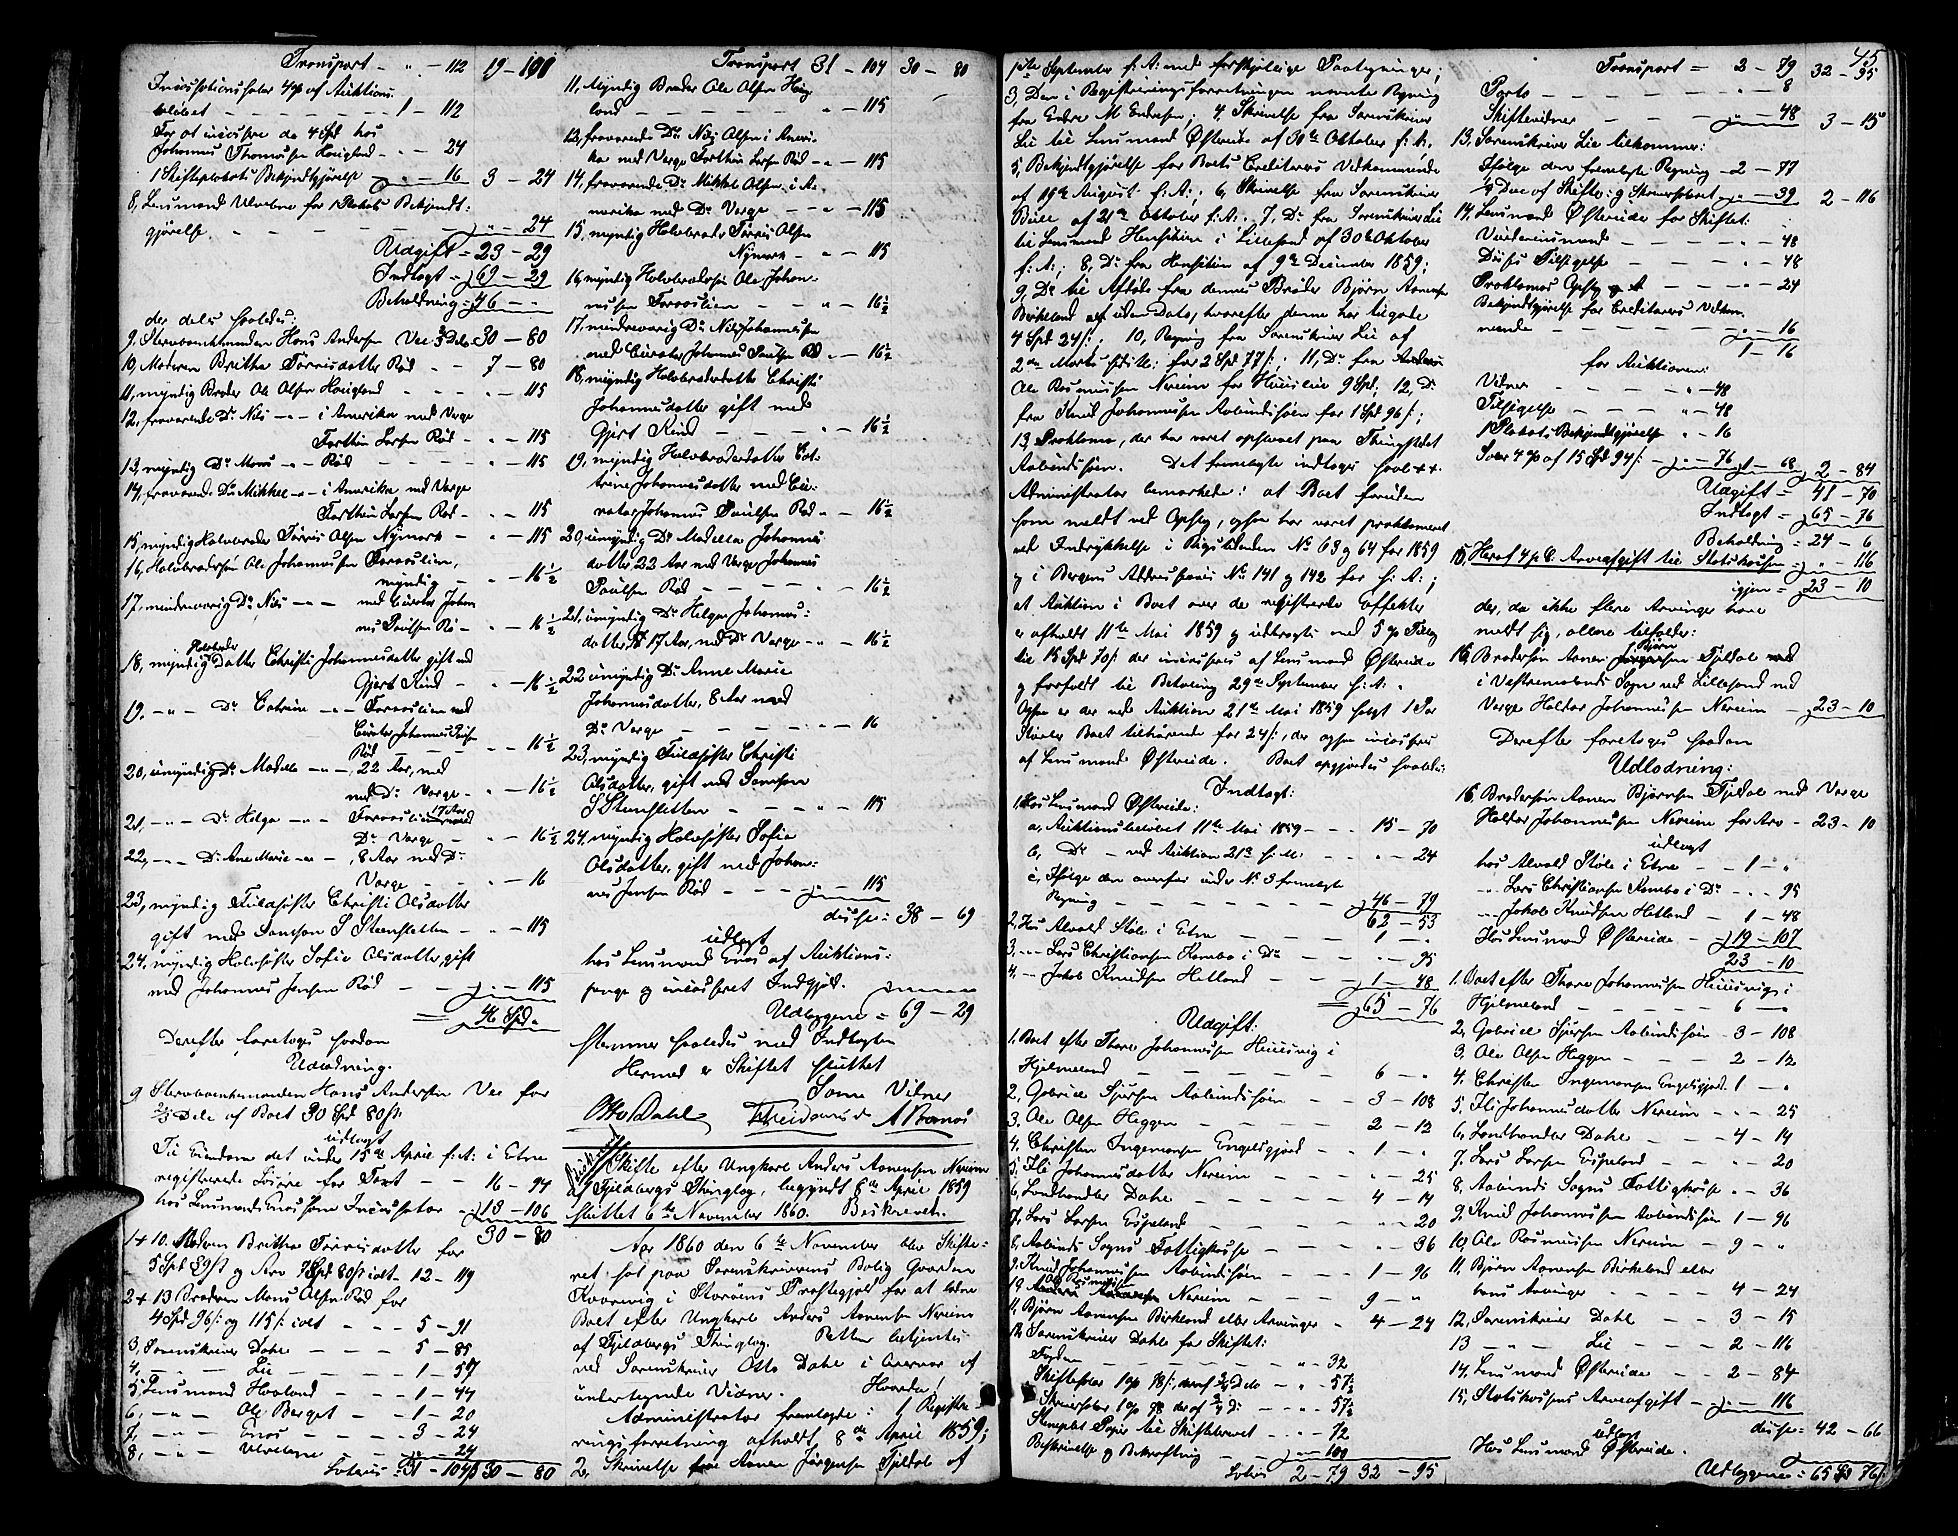 Transport - " - 112 19 - 101
Incassationssalær 4% af Auktions:
beløbet - - - - - - 1 - 112
For at incassere de 4 Spd hos
Johannes Thomassen Hougland - " - 24
1 Skifteplakats Bekjendtgjørelse - " - 16 3 - 24
8, Lensmand Ulvelene for 1 Plakats Bekjendt:
gjørelse - - - - - - " - 24
Udgift = 23 - 29
Indtægt = 69 - 29
Beholdning = 46 - "
der deles saaledes:
9, Sterboenkemanden Hans Andersen Vee ⅔ Dele 30 - 80
10, Moderen Britha Tørrisdatter Rød - - 7 - 80
11, myndig Broder Ole Olsen Hougland - - - " - 115
12, fraværende Do Nils - " - i Amerika med Verge
Torthin Larsen Rød - " - 115
13, myndig Do Mons - " - Rød - - - - " - 115
14, fraværende Do Mikkel - " - i Amerika med Verge
Torthin Larsen Rød - " - 115
15, myndig Halvbroder Tørris Olsen Nymark - " - 115
16, Halvbrodersøn Ole Johannessen
myndig - " - 16½
17, mindreaarig Do Nils - " - med Curator Johan
nes Paulsen Rø - " - 16½
18, myndig Halvbroder Datter Christi Johannesdatter gift med
Gjert - - " - 16½
19, - " - Do Catrine - " - med
Curator Johannes Paulsen
Rød - - - " - 16½
20, umyndig Do Madelle - " -, 22 Aar, med
Do Verge - " - 16½
21, - " - Do Helga - " - 17 Aar med
Do Verge - - " - 16½
22, - " - Do Ane Marie - " -, 8 Aar med Do
Verge - - - " - 16
23, myndig Fuldsøster Christi Olsdatter
gift med Samson S Steensletten - - " - 115
24, myndig Halvsøster Sofie Olsdatter, gift
med Johannes Jensen Rød - - " - 115
= 46 Spd "
Derefter foretoges saadan
Udlodning.
9 Sterboenkemanden Hans Andersen Vee for
⅔ Dele af Boet 30 Spd 80 sk
udlagt
Til Eiendom det under 15de April f: A: i Etne
registrerede Løsøre for Taxt - - 16 - 94
hos Lensmand Enæs som Incassator - 13 - 106
30 - 80
1 + 10. Moderen Britha Tørrisdatter for
5 Spd 39 sk og Arv 7 Spd 80 sk ialt - 12 - 119
2 + 13 Broderen Mons Olsen Rød for
4 Spd 96 sk og 115 sk ialt - - - 5 - 91
3, Sorenskriver Dahl - - - - 5 - 85
4, - " - Lie - - - - 1 - 57
5, Lensmand Haaland - - - 1 - 44
6, - " - Ole Berget - - 1 - 20
7, - " - Enæs - - - 3 - 24
8, - " - Ulvelene - - - " - 24
Lateris = 31 - 104 30 - 80
Transport 31 - 104 30 - 80
11, Myndig Broder Ole Olsen Houg
land - - - - - " - 115
12, fraværende Do Nils Olsen i Ameri-
ka med Verge Torthin Larsen Rød - " - 115
14, fraværende Do Mikkel Olsen i A:
merika med Do Verge - - " - 115
15, myndig Halvbroder Tørris Olsen
Nymark - " - 115
16, myndig Halvbrodersøn Ole Johan-
nessen - - " - 16½
17, mindreaarig Do Nils Johannessen
med Curator Johannes Paulsen Rød - 16½
18, myndig Halvbroderdatter Christi
Johannesdatter gift med
Gjert - - - - " - 16½
19, myndig Halvbroderdatter Cat-
trine Johannesdatter med Cu:
rator Johannes Paulsen Rød - " - 16½
20, umyndig Do Madella Johannes
datter 22 Aar med Verge Johannes
Paulsen Rød - - - " - 16½
21, umyndig Do Helga Johannes:
datter 17 Aar, med Do Verge - " - 16½
22 umyndig Do Anne Marie
Johannesdatter, 8 Aar med
Do Verge - - - - " - 16
23, myndig Fuldsøster Christi
Olsdatter, gift med Samson
S Steensletten - - - " - 115
24, myndig Halvsøster Sofie
Olsdatter, gift med Johan:
nes Jensen Rød - - - " - 115
disse = 38 - 69
udlagt
hos Lensmand Enæs af Auktions:
penge og incasseret Indgjæld.
Udlæggene = 69 - 29
stemmer saaledes med Indtægten
Hermed er Skiftet sluttet
Som Vidner
Otto Dahl
Beskrevet
Skifte efter Ungkarl Anders Aanensen Nereim
af Fjeldbergs Thinglag, begyndt 8de April 1859
sluttet 6te November 1860. Beskrevet.
Aar 1860 den 6te November blev Skifte-
ret sat paa Sorenskriverens Bolig Gaarden
i Storøens Præstegjeld for at slutte
Boet efter Ungkarl Anders Aanensen Nereim
af Fjeldbergs Thinglag. Retten betjentes
ved Sorenskriver Otto Dahl i Overvær af
undertegnede Vidner. Hvorda!
Administrator fremlagde: 1, Registre-
ringsforretning afholdt 8de April 1859;
2, Skrivelse fra Aanen Jørgensen Tjeldal af
45
September f: A: med forskjellige Paategninger;
3, Den i Registreringsforretningen nævnte Regning
fra Endre M Endresen; 4, Skrivelse fra Sorenskriver
Lie til Lensmand Østreide af Oktober f: A:.
5, Bekjendtgjørelse for Boets Creditorers Vedkommende
af 19de August f: A:; 6, Skrivelse fra Sorenskriver
Bull af 21de Oktober f: A:. 7, Do fra Sorenskriver Lie
til Lensmand Henschien i Lillesand af 30te Oktober
f: A:; 8, Do fra Henschien af 9de December 1859;
9, Do til Afdøde fra dennes Broder Bjørn Aanensen
Birkeland uden Dato, hvorefter denne har tilgode
4 Spd 24 sk; 10, Regning fra Sorenskriver Lie af
2den Marts sidstl: for 2 Spd 77 sk; 11, Do fra
Ole Rasmussen Nereim for Huusleie 9 Spd; 12, Do
fra Knud Johannessen Aabindsøen for 1 Spd 96 sk;
13, Proklama, der har været opslaaet paa Thingstedet
Aabindsøen. Det fremlagte indtages saal ++
Administrator bemærkede: at Boet foruden
som meldt ved Opslag, ogsaa har været proklameret
ved Indrykkelse i Rigstidenden No 63 og 64 for 1859
og i Bergens Addresseavis No 141 og 142 for s: A:;
at Auktion i Boet over de registrerede Effekter
er afholdt 11te Mai 1859 og udbragtes med 5% Tillæg
til 15 Spd 70 sk der incasseres af Lensmand Østreide
og forfaldt til Betaling 29de September f: A:.
Ogsaa er der ved Auktion 21de Mai 1859 solgt 1 Par
Støvler Boet tilhørende for 24 sk, der ogsaa incasseres
af Lensmand Østreide. Boet opgjordes saaledes
Indtægt:
1, Hos Lensmand Østreide:
a, Auktionsbeløbet 11te Mai 1859 - - 15 - 70
b, Do - ved Auktion 21de s: M: - - " - 24
c, Ifølge den ovenfor under No 3 fremlagte
Regning - - - - - - 46 - 79
62 - 53
2, Hos Alvald Støle i Etne - - - 1 - "
3, - " - Lars Christiansen Kambo i Do - - " - 95
4, - " - Jakob Knudsen Hetland - - - 1 - 48
= 65 - 76
Udgift:
1. Boet efter Thore Johannessen Huusvig i
Hjelmeland - - - - - 6 - "
2, Gabriel Sjursen Aabindsøen - - - 3 - 108
3. Ole Olsen Heggen - - - - 2 - 12
4, Christen Ingemansen Engelsgjerd - - 1 - "
5, Ili Johannesdatter Nereim - - - " - 25
6, Landhandler Dahl - - - - 4 - 14
7, Lars Larsen Espeland - - - - " - 20
8, Aabinds Sogns Fattigkasse - - - " - 36
9, Knud Johannessen Aabindsøen - - - 1 - 96
10, Ole Rasmussen Nereim - - - 9 - "
11, Bjørn Aanensen Birkeland eller Arvinger - 4 - 24
12, Sorenskriver Dahl for Skiftet:
Fogden - - - - - - " - 32
Skiftesalær 1% 78 sk, deraf ¾ Dele - - " - 57½
Skriversalær 1% 78 der af ¾ Do - - " - 57½
Stemplet Papir til Skiftebrevet - - " - 72
Beskrivelse og Bekræftning - - " - 100
Lateris 2 - 79 32 - 95
Transport = 2 - 79 32 - 95
Porto - - - - - " - 8
Skiftevidner - - - - " - 48 3 - 15
13, Sorenskriver Lie tilkommer:
Ifølge den fremlagte Regning - 2 - 77
¼ Deel af Skifte: og Skriversalæret " - 39 2 - 116
14, Lensmand Østreide for Skiftet:
Vurderingsmænd - - - - " - 48
Disses Tilsigelse - - - - " - 48
Proklamas Opslag - - - - " - 24
Bekjendtgjørelse for Creditorers Vedkom-
mende - - - - - - " - 16
1 - 16
for Auktionen:
Vidner - - - - " - 48
Tilsigelse - - - - " - 48
1 Plakats Bekjendtgjørelse " - 16
Salær 4% af 15 Spd 94 sk - " - 76 1 - 68 2 - 84
Udgift = 41 - 70
Indtægt = 65 - 76
Beholdning = 24 - 6
15, Heraf 4 p. C. Arveafgift til Statskassen = " - 116
igjen = 23 - 10
der, da ikke flere Arvinger have
meldt sig, allene tilfalder:
16, Brodersøn Aanen Bjørnsen Tjeldal
i Vestremolands Sogn ved Lillesand med
Verge Haldor Johannessen Nereim - 23 - 10
Derefter foretoges saadan
Udlodning:
16, Brodersøn Aanen Bjørnsen Tjeldal med Verge
Haldor Johannessen Nereim for Arv - 23 - 10
udlagt
hos Alvald Støle i Etne - 1 - "
" Lars Christiansen Kambo i Do - " - 95
" Jakob Knudsen Hetland - 1 - 48
Hos Lensmand Østreide - 19 - 107
23 - 10
1. Boet efter Thore Johannessen Huusvig i
Hjelmeland - - - - 6 - "
2, Gabriel Sjursen Aabindsøen - 3 - 108
3. Ole Olsen Heggen - - - 2 - 12
4, Christen Ingemansen Engelsgjerd 1 - "
5, Ili Johannesdatter Nereim - - " - 25
6, Landhandler Dahl - - - 4 - 14
7. Lars Larsen Espeland - - - " - 20
8, Aabinds Sogns Fattigkasse " - 36
9, Knud Johannessen Aabindsøen 1 - 96
10, Ole Rasmussen Nereim - - 9 - "
11, Bjørn Aanensen Birkeland eller
hans Arvinger - - - - 4 - 24
12, Sorenskriver Dahl - - 3 - 15
13 - " - Lie - - 2 - 116
14, Lensmand Østreide - - 2 - 84
15, Statskassens Arveafgift - " - 116
disse = 42 - 66
udlagt
Hos Lensmand Østreide.
Udlæggenes = 65 Spd 76 sk